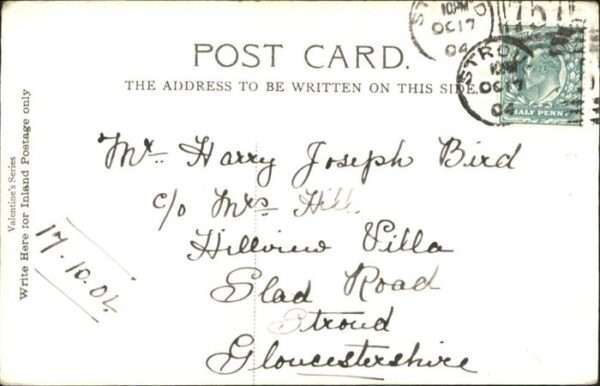 POST CARD.
THE ADDRESS TO BE WRITTEN ON THIS SIDE.
STROUD
10PM
OC 17
04
757
HALF PENNY
Valentine's Series
Write Here for Inland Postage only
17.10.04
Mr. Harry Joseph Bird
c/o Mrs Hill.
Hillview Villa
Slad Road
Stroud
Gloucestershire